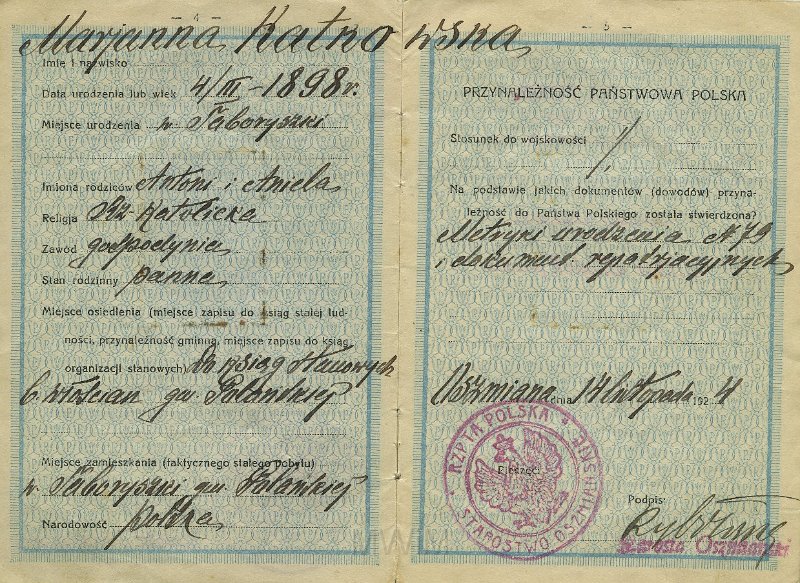 - 4 -
Marjanna Katko wska
Imię i nazwisko
Data urodzenia lub wiek 4/III - 1898 r.
Miejsce urodzenia w. Taboryszki
Imiona rodziców Antoni i Aniela
Religja Rz. Katolicka
Zawód gospodynia
Stan rodzinny panna
Miejsce osiedlenia (miejsce zapisu do ksiąg stałej lud-
ności, przynależność gminną, miejsce zapisu do ksiąg
organizacji stanowych) Do ksiąg stanowych
b. włościan gm. Polańskiej
Miejsce zamieszkania (faktycznego stałego pobytu)
w. Taboryszki gm. Polańskiej
Narodowość polska
- 5 -
PRZYNALEŻNOŚĆ PAŃSTWOWA POLSKA
Stosunek do wojskowości
Na podstawie jakich dokumentów (dowodów) przyna-
leżność do Państwa Polskiego została stwierdzona?
Metryki urodzenia № 79
i dokument repatrjacyjnych
Oszmiana dnia 14 listopada 1924
RZPTA POLSKA
STAROSTWO OSZMIAŃSKIE
Pieczęć:
Podpis:
Starosta Oszmiański